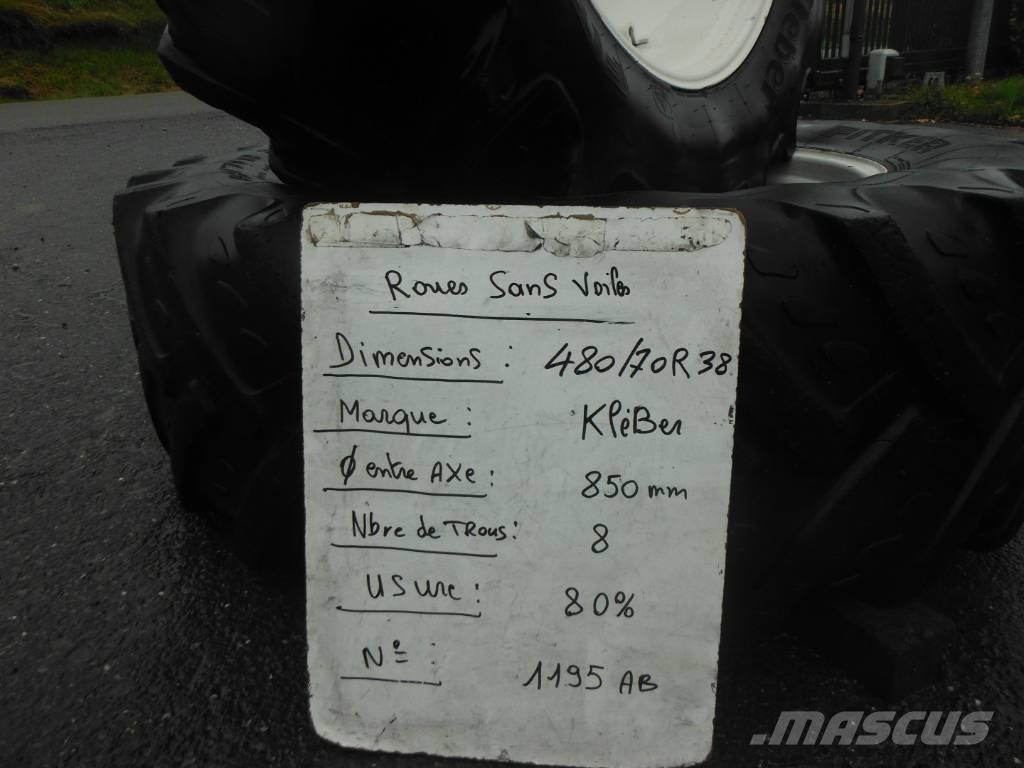 Roues Sans Voiles
Dimensions : 480/70R38
Marque : KléBer
Ø entre AXe : 850 mm
Nbre de TRous : 8
USure : 80%
Nº : 1195 AB
MASCUS